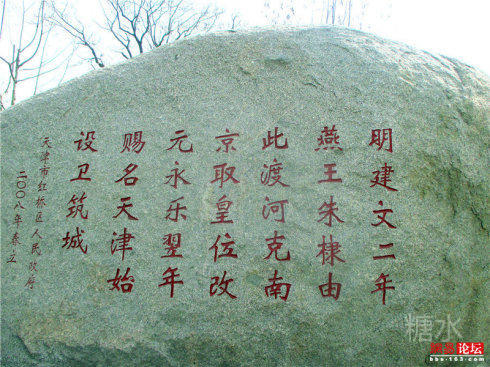 明建文二年
燕王朱棣由
此渡河克南
京取皇位改
元永乐翌年
赐名天津始
设卫筑城
天津市红桥区人民政府
二〇〇八年春立
糖水
论坛
bbs·163.com